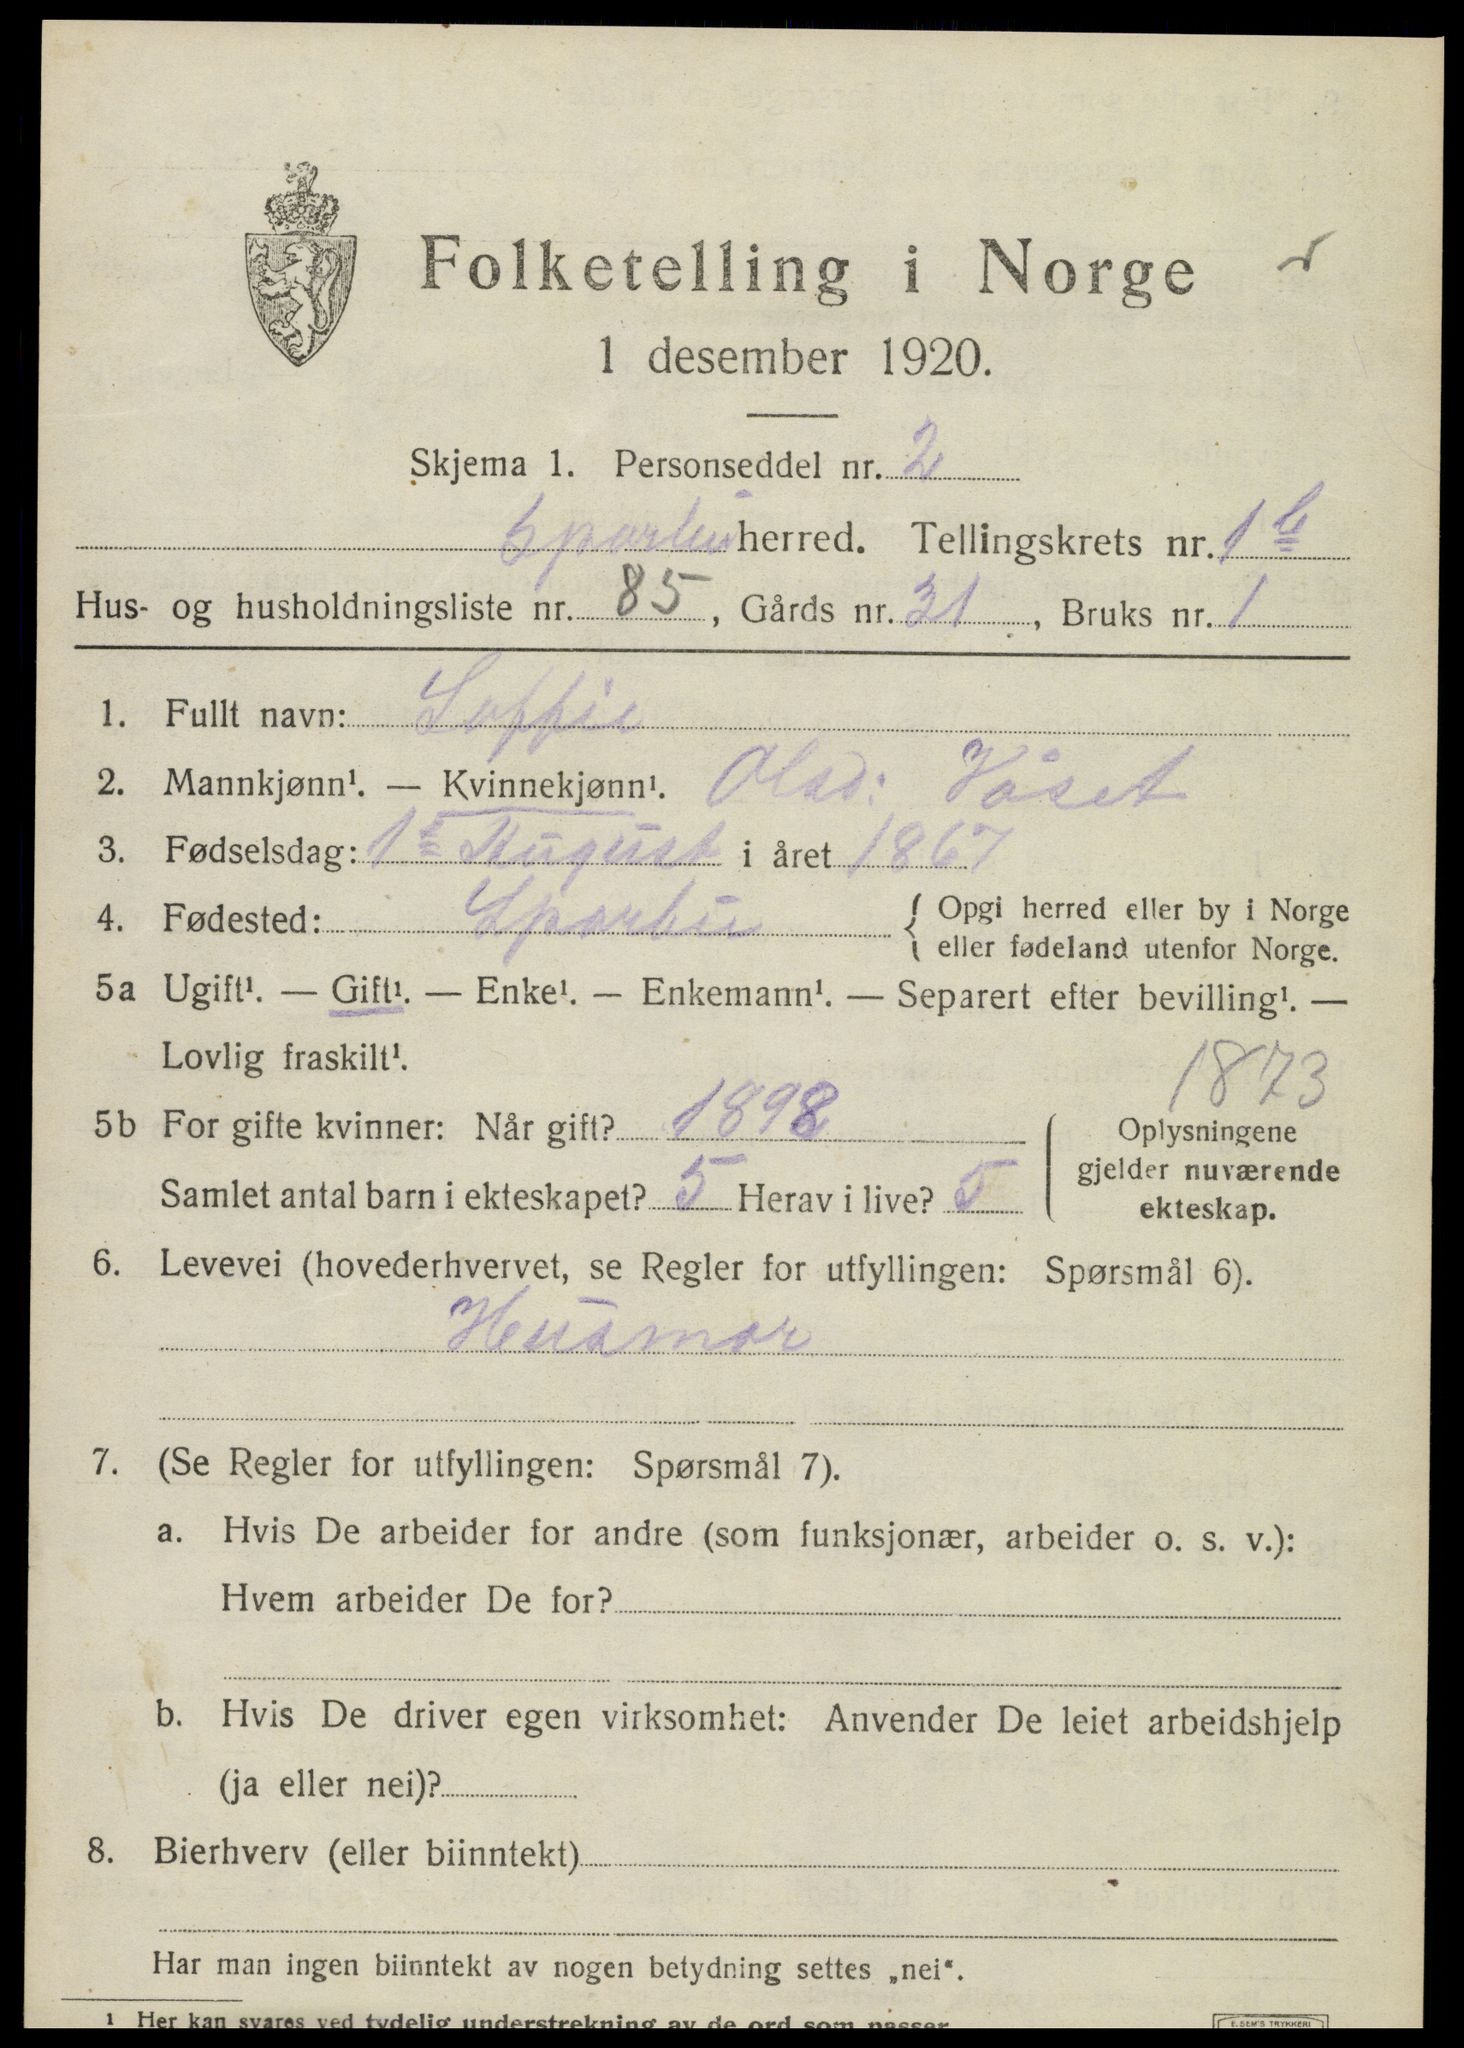 Folketelling i Norge
1 desember 1920.
Skjema 1. Personseddel nr. 2
Sparbu herred. Tellingskrets nr. 1 b
Hus- og husholdningsliste nr. 85, Gårds nr. 31, Bruks nr. 1
1. Fullt navn: Soffie
2. Mannkjønn¹. — Kvinnekjønn¹. Olsd: Våset
3. Fødselsdag: 1ste August i året 1867
4. Fødested: Sparbu { Opgi herred eller by i Norge
eller fødeland utenfor Norge.
5a Ugift¹. — Gift¹. — Enke¹. — Enkemann¹. — Separert efter bevilling¹. —
Lovlig fraskilt¹.
1873
5b For gifte kvinner: Når gift? 1898
Samlet antal barn i ekteskapet? 5 Herav i live? 5
Oplysningene
gjelder nuværende
ekteskap.
6. Levevei (hovederhvervet, se Regler for utfyllingen: Spørsmål 6).
Husmor
7. (Se Regler for utfyllingen: Spørsmål 7).
a. Hvis De arbeider for andre (som funksjonær, arbeider o. s. v.):
Hvem arbeider De for?
b. Hvis De driver egen virksomhet: Anvender De leiet arbeidshjelp
(ja eller nei)?
8. Bierhverv (eller biinntekt)
Har man ingen biinntekt av nogen betydning settes „nei".
¹ Her kan svares ved tydelig understrekning av de ord som passer
E. SEM'S TRYKKERI